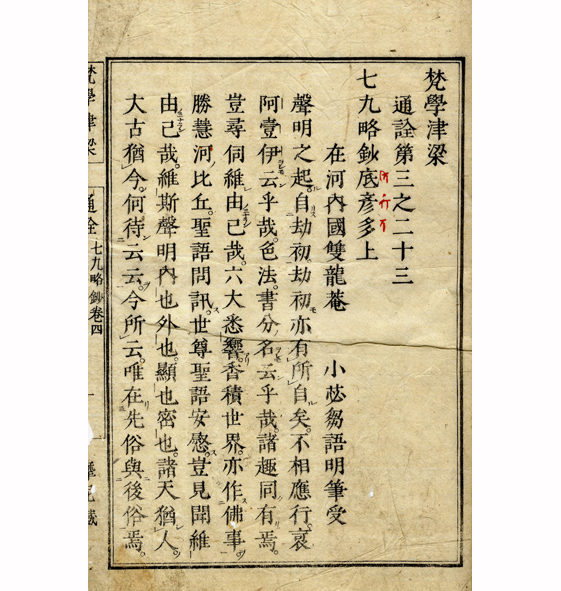 梵學津梁
通詮第三之二十三
七九略鈔底彦多上
在河內國雙龍菴　小苾芻語明筆受
聲明之起。自劫初。劫初亦有所自矣。不相應行。哀
阿壹伊云乎哉。色法。書分名云乎哉。諸趣同有焉。
豈尋伺維由己哉。六大悉響。香積世界。亦作佛事。
勝慧河比丘。聖語問訊。世尊聖語安慰。豈見聞維
由己哉。維斯聲明內也外也。顯也密也。諸天猶人。
大古猶今。何待云云。今所云。唯在先俗與後俗焉。
梵學津梁
通詮
七九略鈔卷四
一